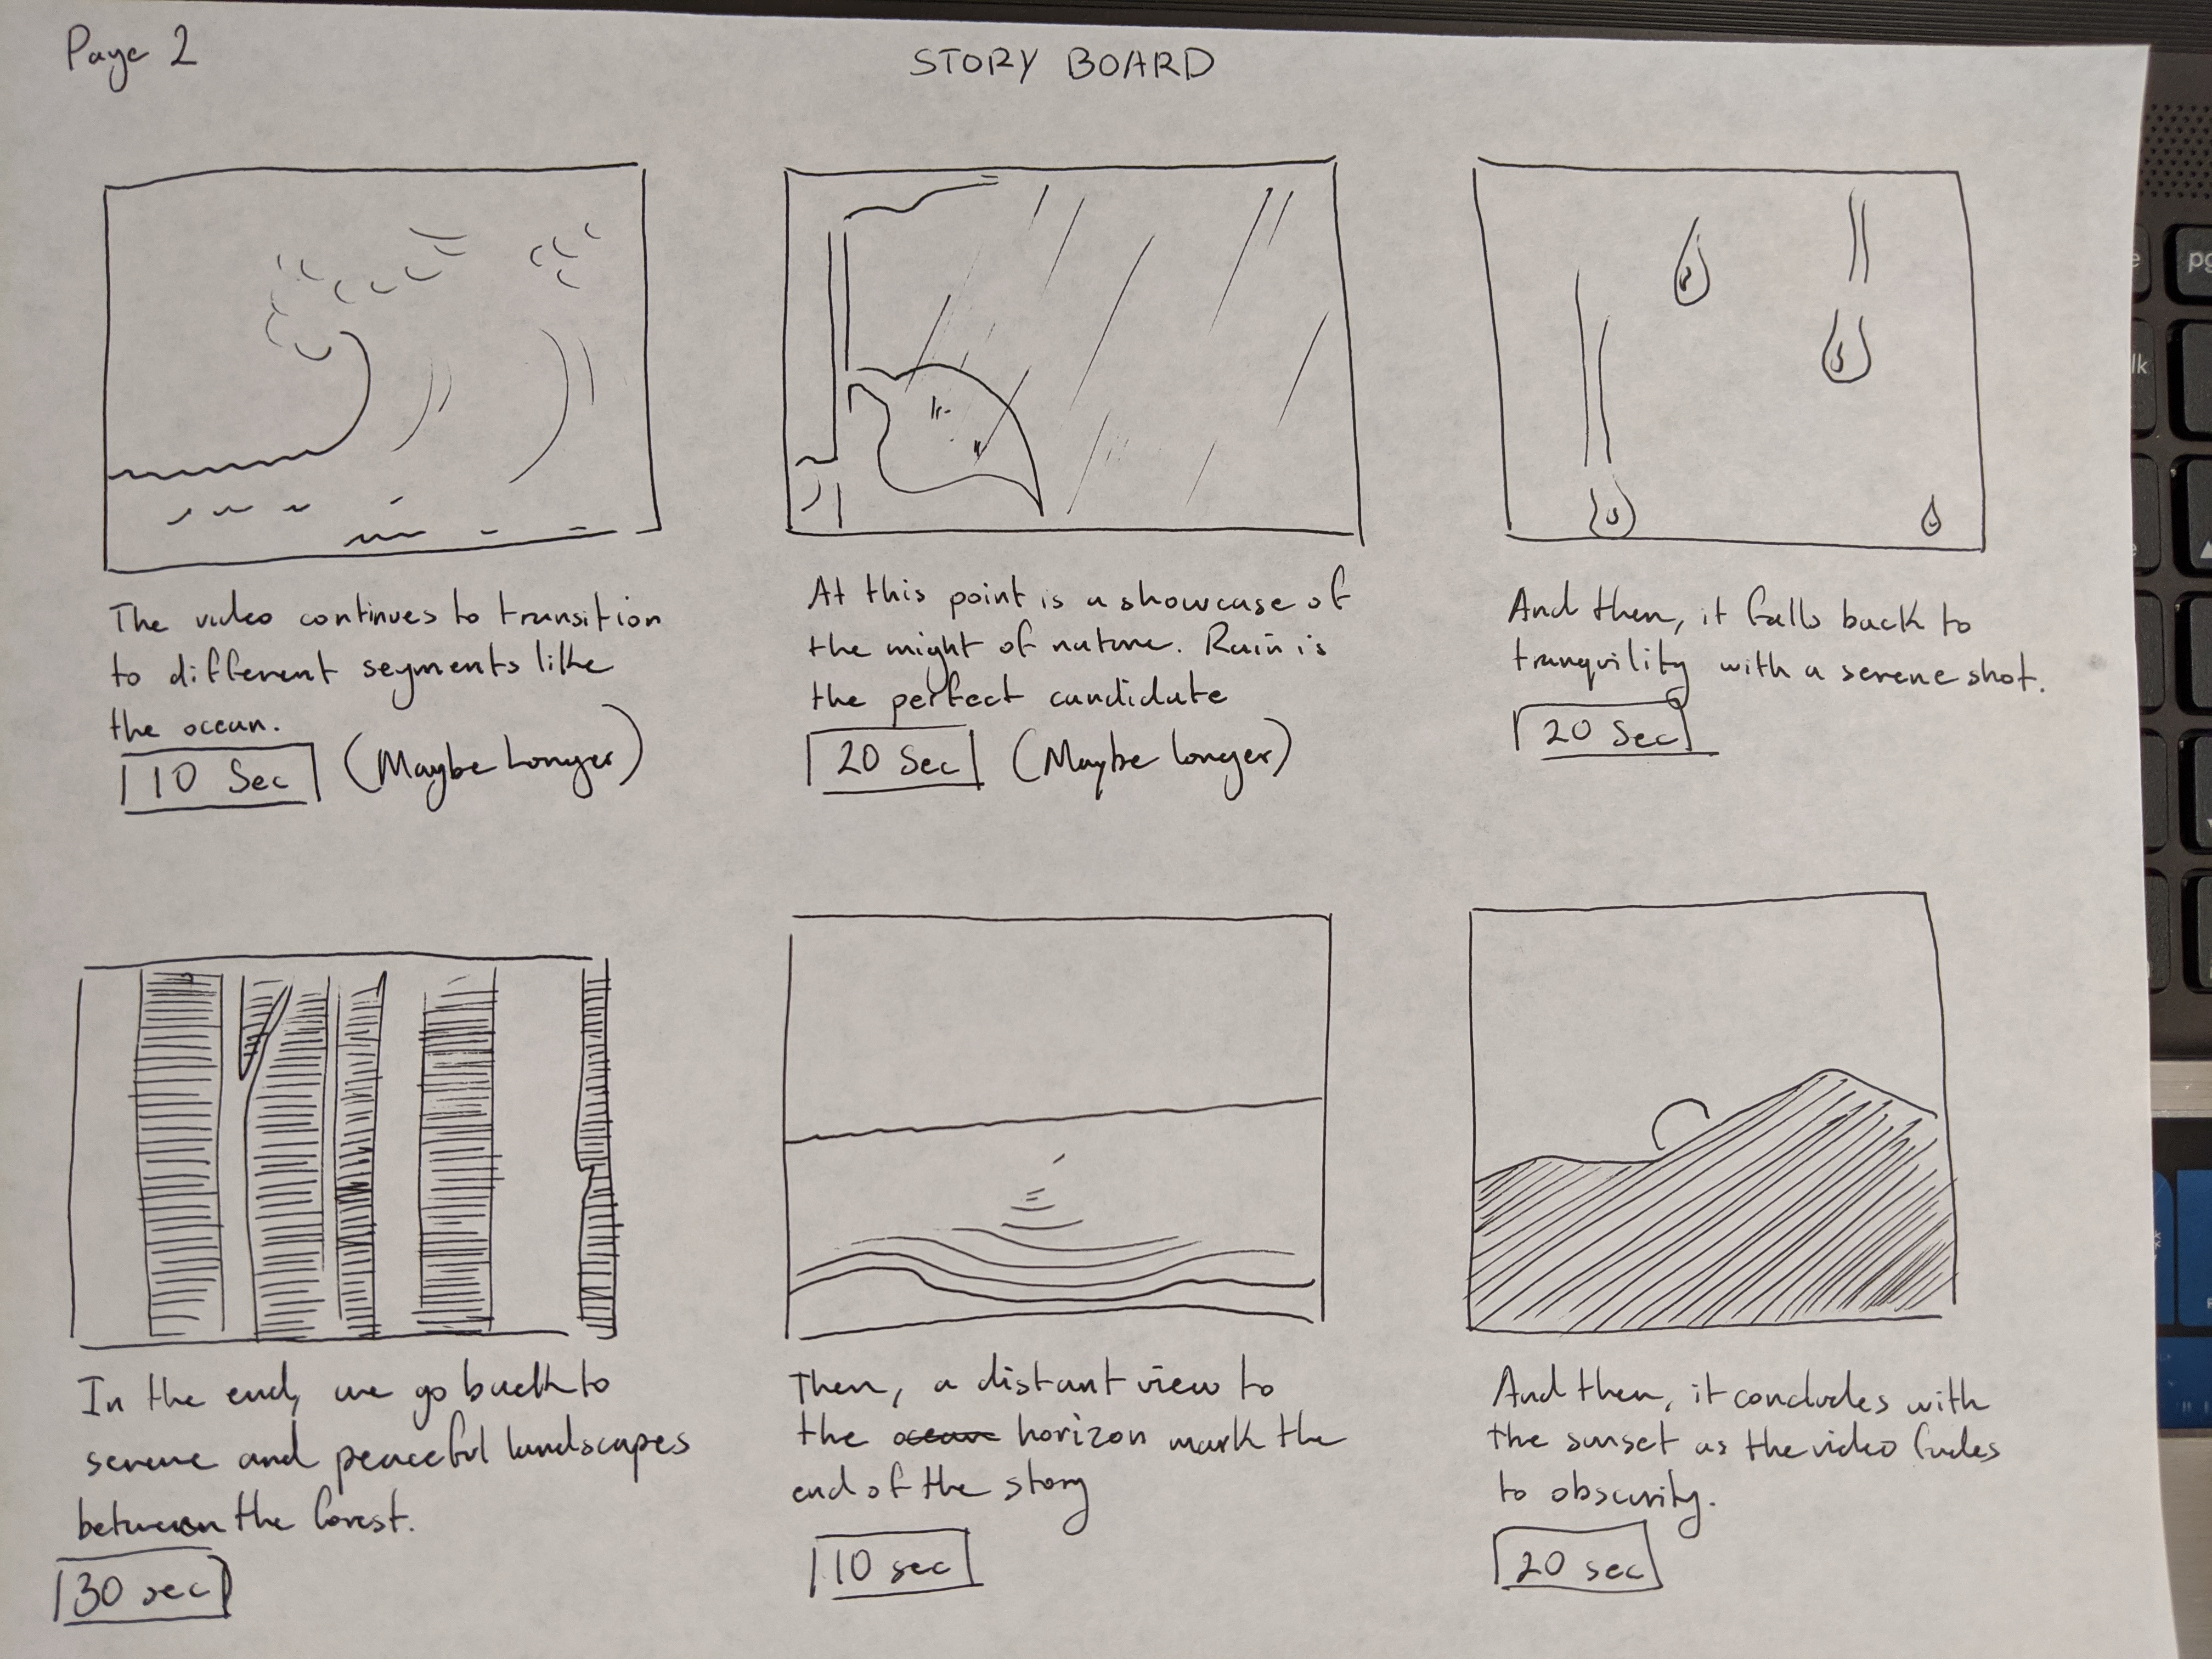 Page 2
STORY BOARD
The video continues to transition
to different segments like
the ocean.
10 Sec (Maybe Longer)
At this point is a showcase of
the might of nature. Rain is
the perfect candidate
20 Sec (Maybe Longer)
And then, it falls back to
tranquility with a serene shot.
20 Sec
In the end, we go back to
serene and peaceful landscapes
between the forest.
30 sec
Then, a distant view to
the horizon mark the
end of the story
10 sec
And then, it concludes with
the sunset as the video fades
to obscurity.
20 sec